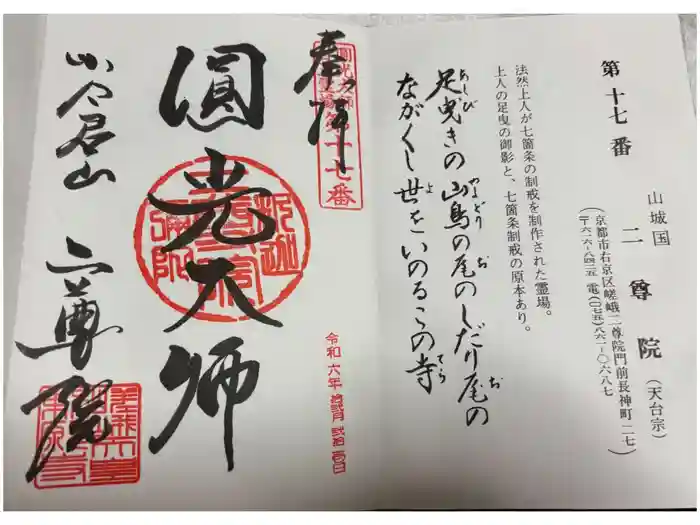 第十七番
山城国
二尊院（天台宗）
（京都市右京区嵯峨二尊院門前長神町二七）
（〒六一六-八四二五 電（〇七五）八六一-〇六八七
法然上人が七箇条の制戒を制作された霊場。
上人の足曳の御影と、七箇条制戒の原本あり。
足曳きの山鳥の尾のしだり尾の
あしび
やまどり
お
お
ながくし世をいのるこの寺
よ
てら
奉拝
圓光大師
第十七番
圓光大師
令和六年拾弐月弐拾一日
小倉山 二尊院